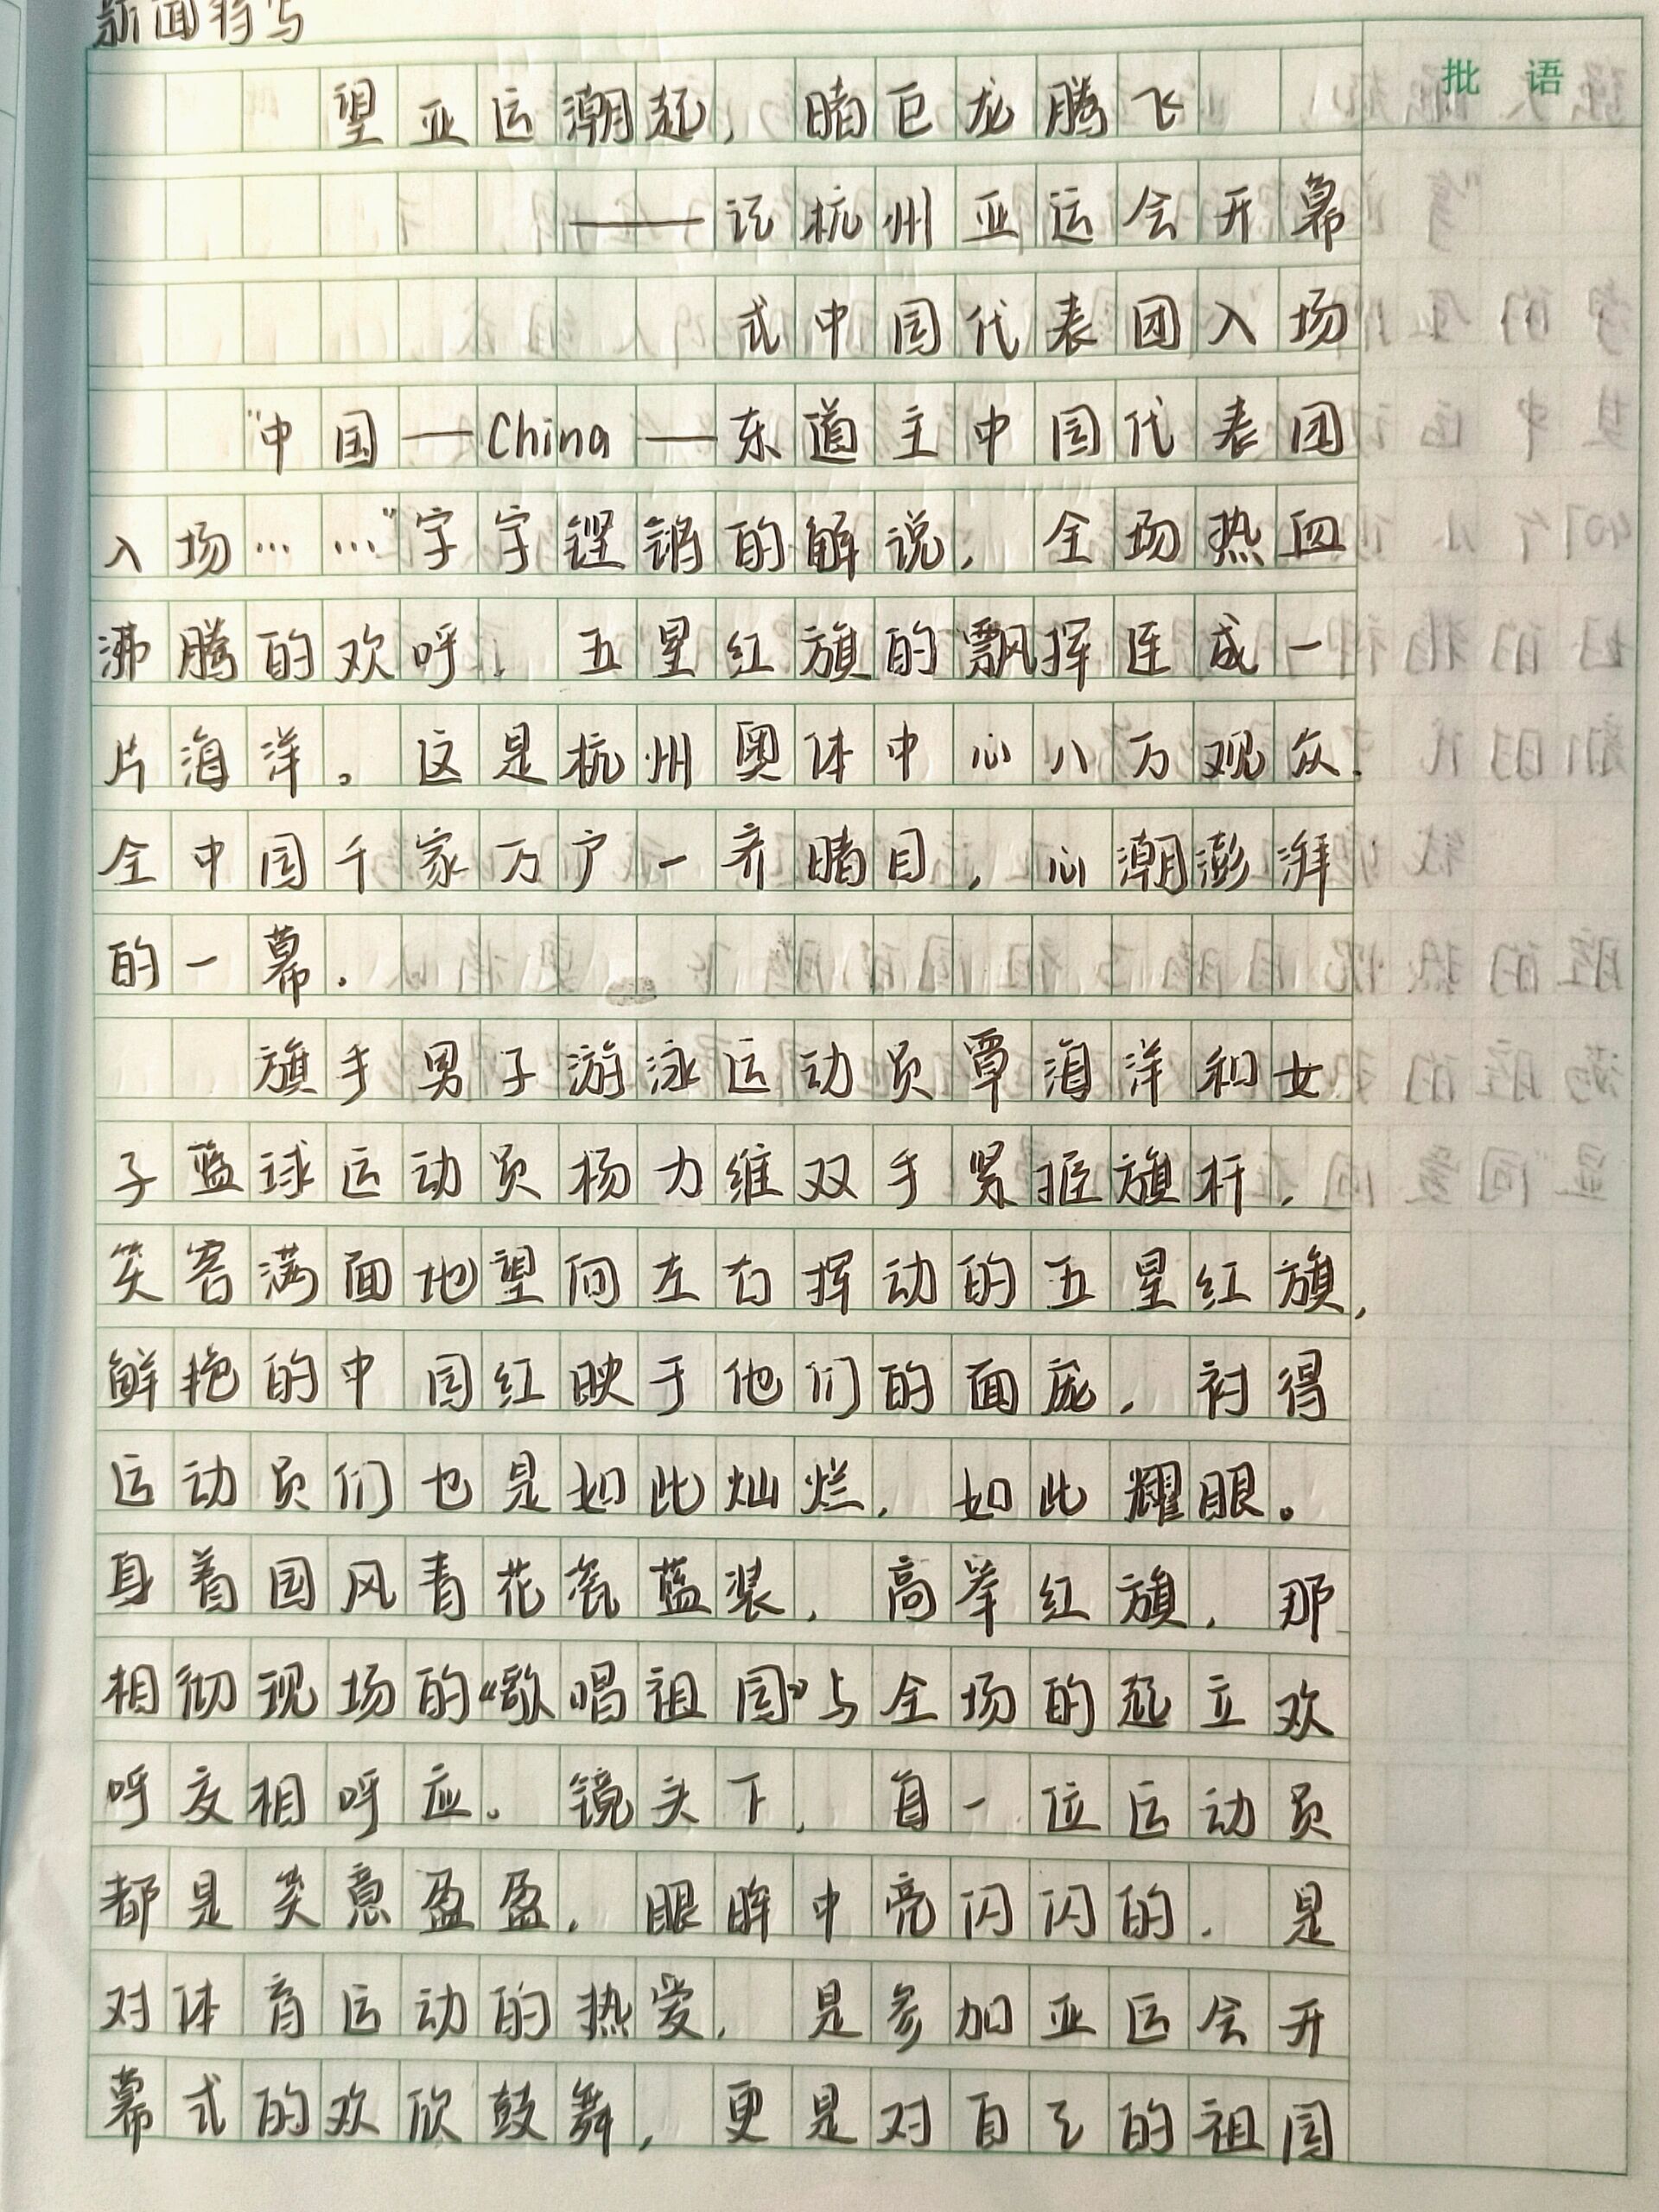 新闻特写
望亚运潮起，睹巨龙腾飞
——记杭州亚运会开幕
式中国代表团入场
“中国—China—东道主中国代表团
入场……”字字铿锵的解说，全场热血
沸腾的欢呼，五星红旗的飘挥连成一
片海洋。这是杭州奥体中心八万观众，
全中国千家万户一齐睹目，心潮澎湃
的一幕.
旗手男子游泳运动员覃海洋和女
子蓝球运动员杨力维双手紧握旗杆，
笑容满面地望向左右挥动的五星红旗，
鲜艳的中国红映于他们的面庞，衬得
运动员们也是如此灿烂，如此耀眼。
身着国风青花瓷蓝装，高举红旗，那
相彻现场的《歌唱祖国》与全场的起立欢
呼交相呼应。镜头下，每一位运动员
都是笑意盈盈，眼眸中亮闪闪的，是
对体育运动的热爱，是参加亚运会开
幕式的欢欣鼓舞，更是对自己的祖国
批语